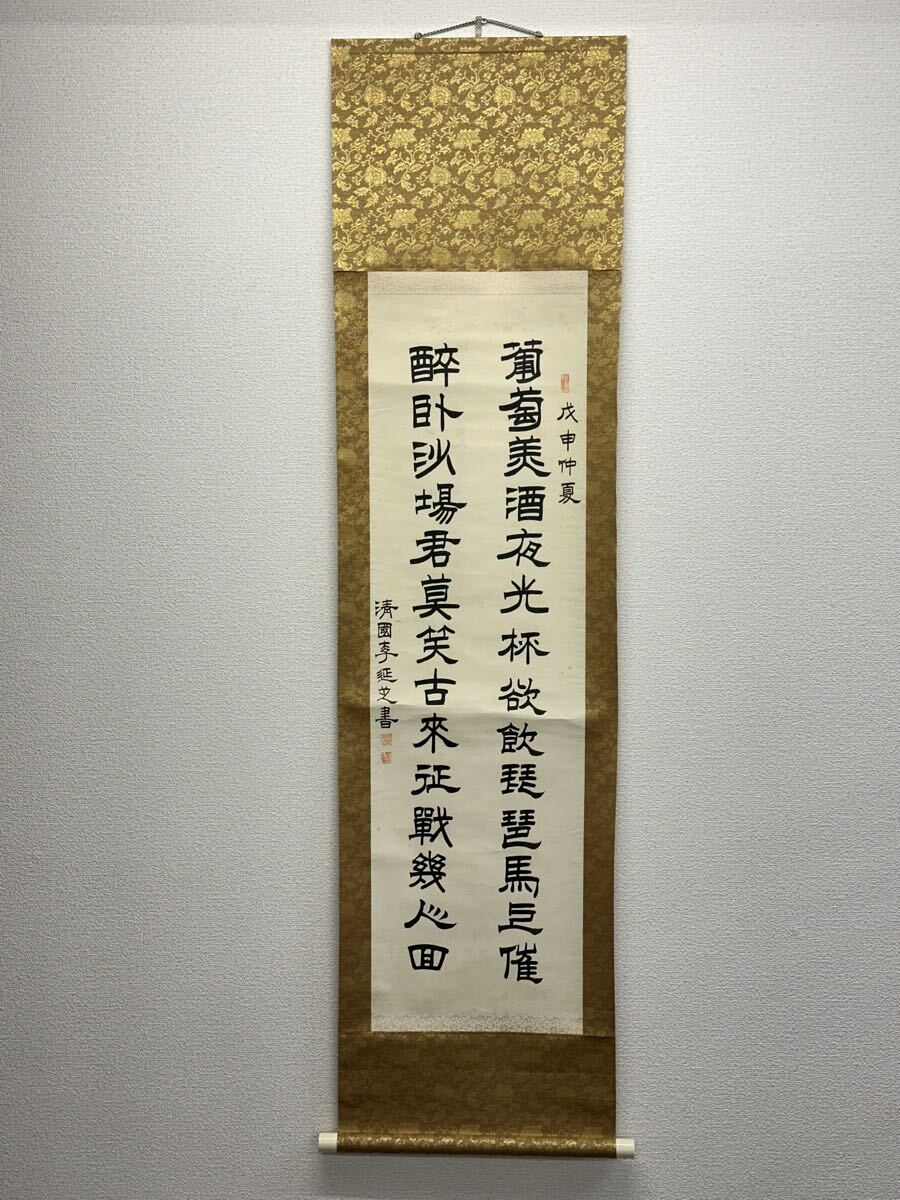 戊申仲夏
葡萄美酒夜光杯欲飲琵琶馬上催
醉卧沙場君莫笑古來征戰幾人回
清國李延芝書